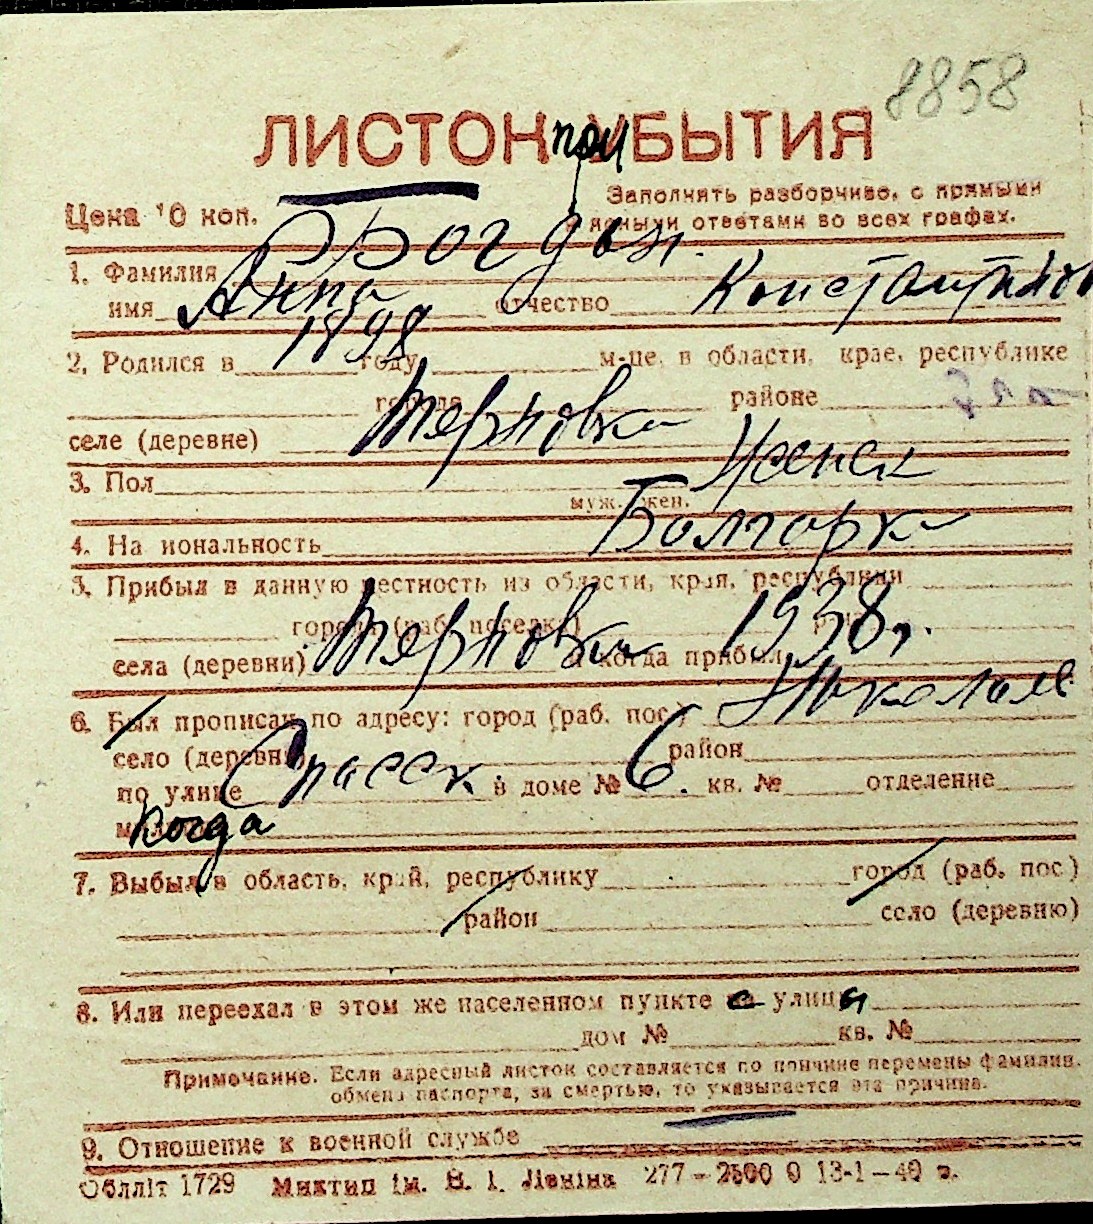 8858
ЛИСТОК при УБЫТИЯ
Заполнять разборчиво, с прямыми
Цена 10 коп.
и ясными ответами во всех графах.
1. Фамилия Богдан.
имя Анна отчество Константинов
2. Родился в 1898 году м-це, в области, крае, республике
города районе
селе (деревне) Терновка
3. Пол Женск
муж. жен.
4. На иональность Болгарка
5. Прибыл в данную местность из области, края, республики
города (раб. поселка)
села (деревни) Терновки и когда прибыл 1938 г.
6. Был прописан по адресу: город (раб. пос.) Николаев
село (деревня) район
по улице Спасск в доме № 6. кв. № отделение
Когда
7. Выбыл в область, край, республику город (раб. пос.)
район село (деревню)
8. Или переехал в этом же населенном пункте с улицы
дом № кв. №
Примечание. Если адресный листок составляется по причине перемены фамилии,
обмена паспорта, за смертью, то указывается эта причина.
9. Отношение к военной службе
Облліт 1729 Миктип ім. В. І. Леніна 277-2500 0 13-1-40 г.